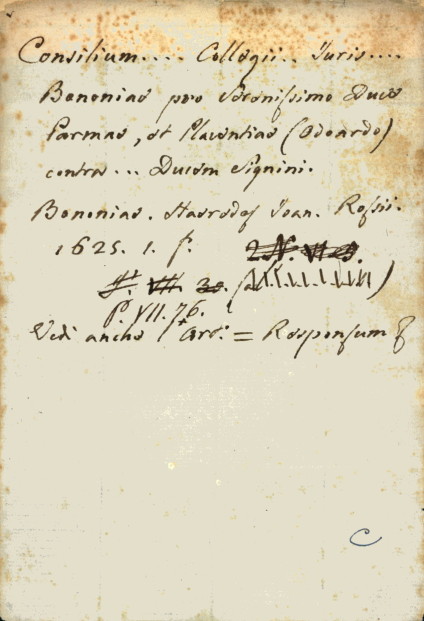 Consilium.... Collegii.. Iuris....
Bononiae pro Serenissimo Duce
Parmae, et Placentiae (Odoardo)
contra... Ducem Signini.
Bononiae. Haeredes Ioan. Rossii.
1625. 1. f.
P. VII. 76.
Vedi anche Cart. = Responsum
C